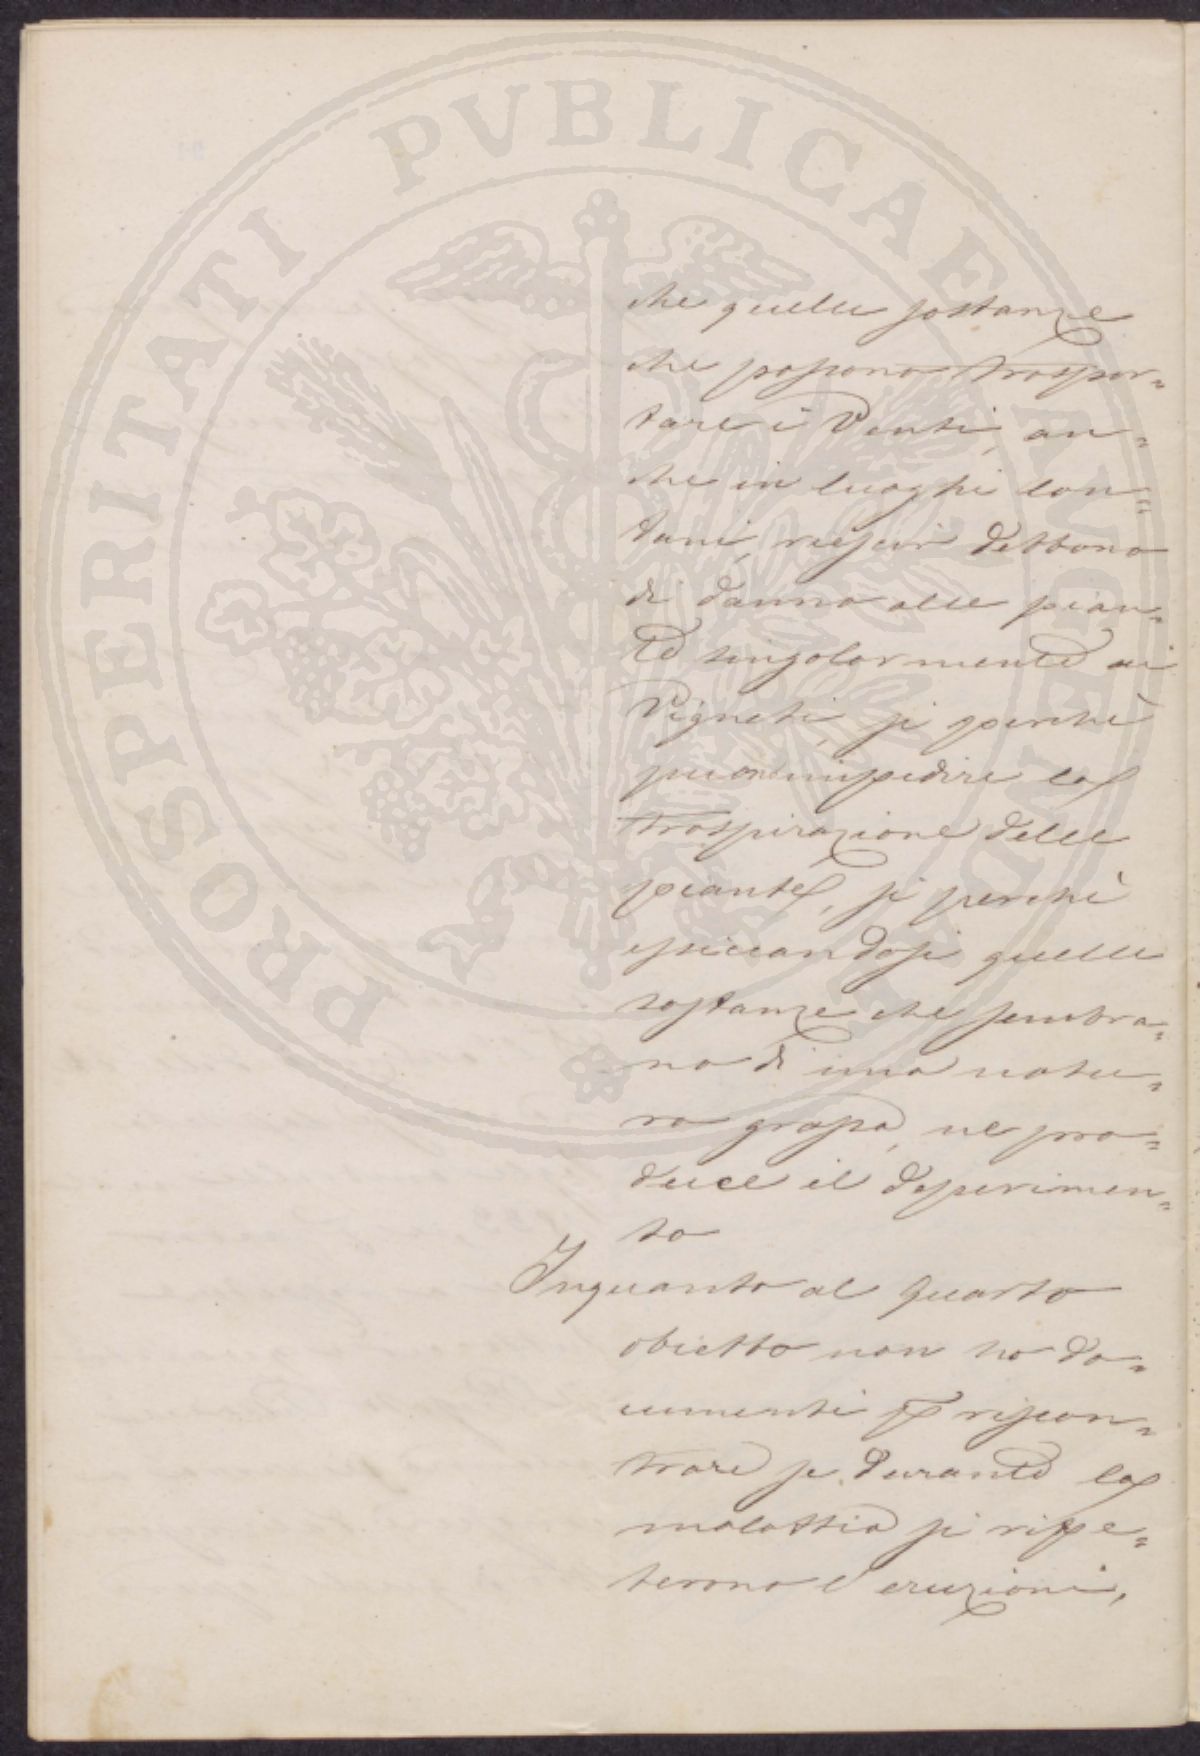 PROSPERITATI PVBLICAE AVGENDAE
che quelle sostanze
che possono traspor=
tare i Venti, an=
che in luoghi lon=
tani, riescir debbono
di danno alle pian=
te singolarmente ai
Vigneti, si perchè
può impedire la
traspirazione delle
piante, si perchè
essiccandosi quelle
sostanze che sembra=
no di una natu=
ra grassa, ne pro=
duce il deperimen=
to
Inquanto al quarto
obietto non ho do=
cumenti p riscon=
trare se durante la
malattia si ripe=
terono l'eruzioni,